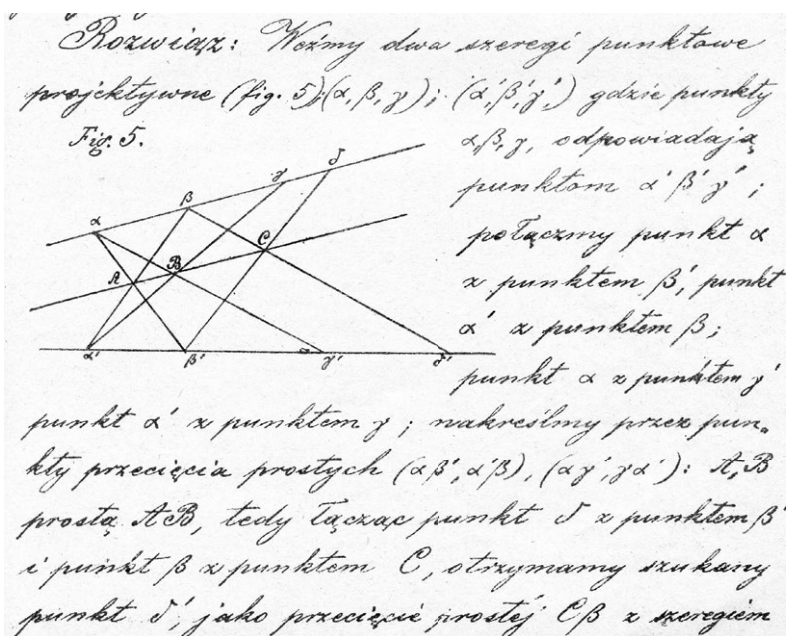 Rozwiąz: Weźmy dwa szeregi punktowe
projektywne (fig. 5); (α, β, γ); (α', β', γ',) gdzie punkty
Fig. 5.
α, β, γ, odpowiadają
punktom α' β' γ';
połączmy punkt α
z punktem β', punkt
α' z punktem β;
punkt α z punktem γ'
α β γ δ
A B C
α' β' γ' δ'
punkt α' z punktem γ; nakreślmy przez pun-
kty przecięcia prostych (αβ', α'β), (αγ', γα'): A, B
prostą AB, tedy łącząc punkt δ z punktem β'
i punkt β z punktem C, otrzymamy szukany
punkt δ', jako przecięcie prostéj Cβ z szeregiem